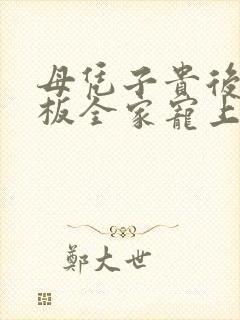 母凭子貴後
板全家寵上
鄭大世